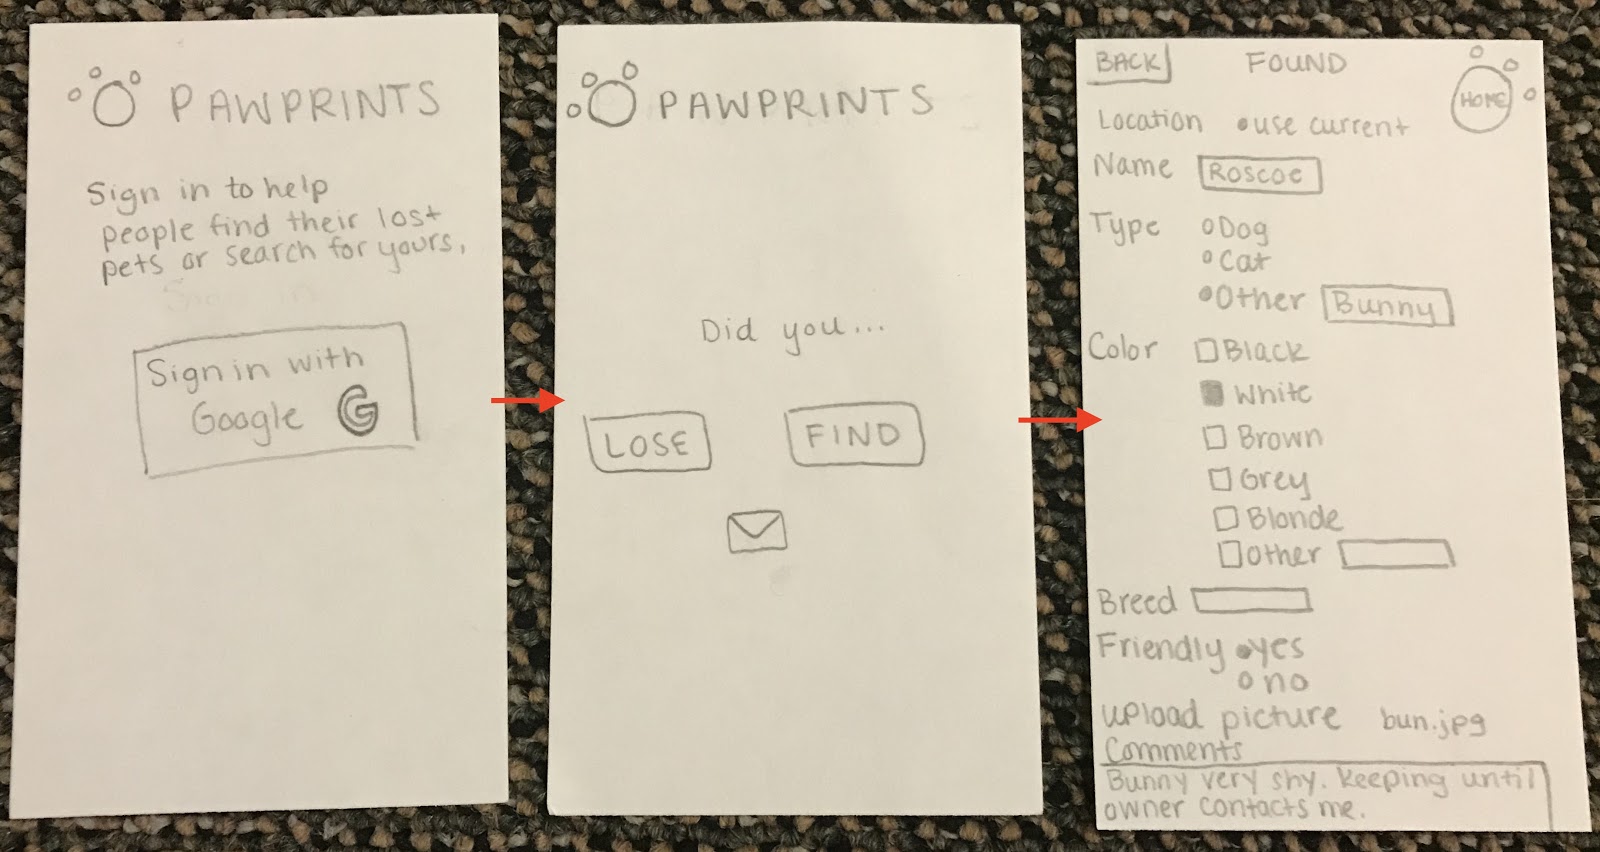 PAWPRINTS
Sign in to help
people find their lost
pets or search for yours.
Sign in with
Google G
PAWPRINTS
Did you...
LOSE FIND
BACK FOUND HOME
Location use current
Name Roscoe
Type Dog
Cat
Other Bunny
Color Black
White
Brown
Grey
Blonde
Other
Breed
Friendly yes
no
upload picture bun.jpg
Comments
Bunny very shy. Keeping until
owner contacts me.